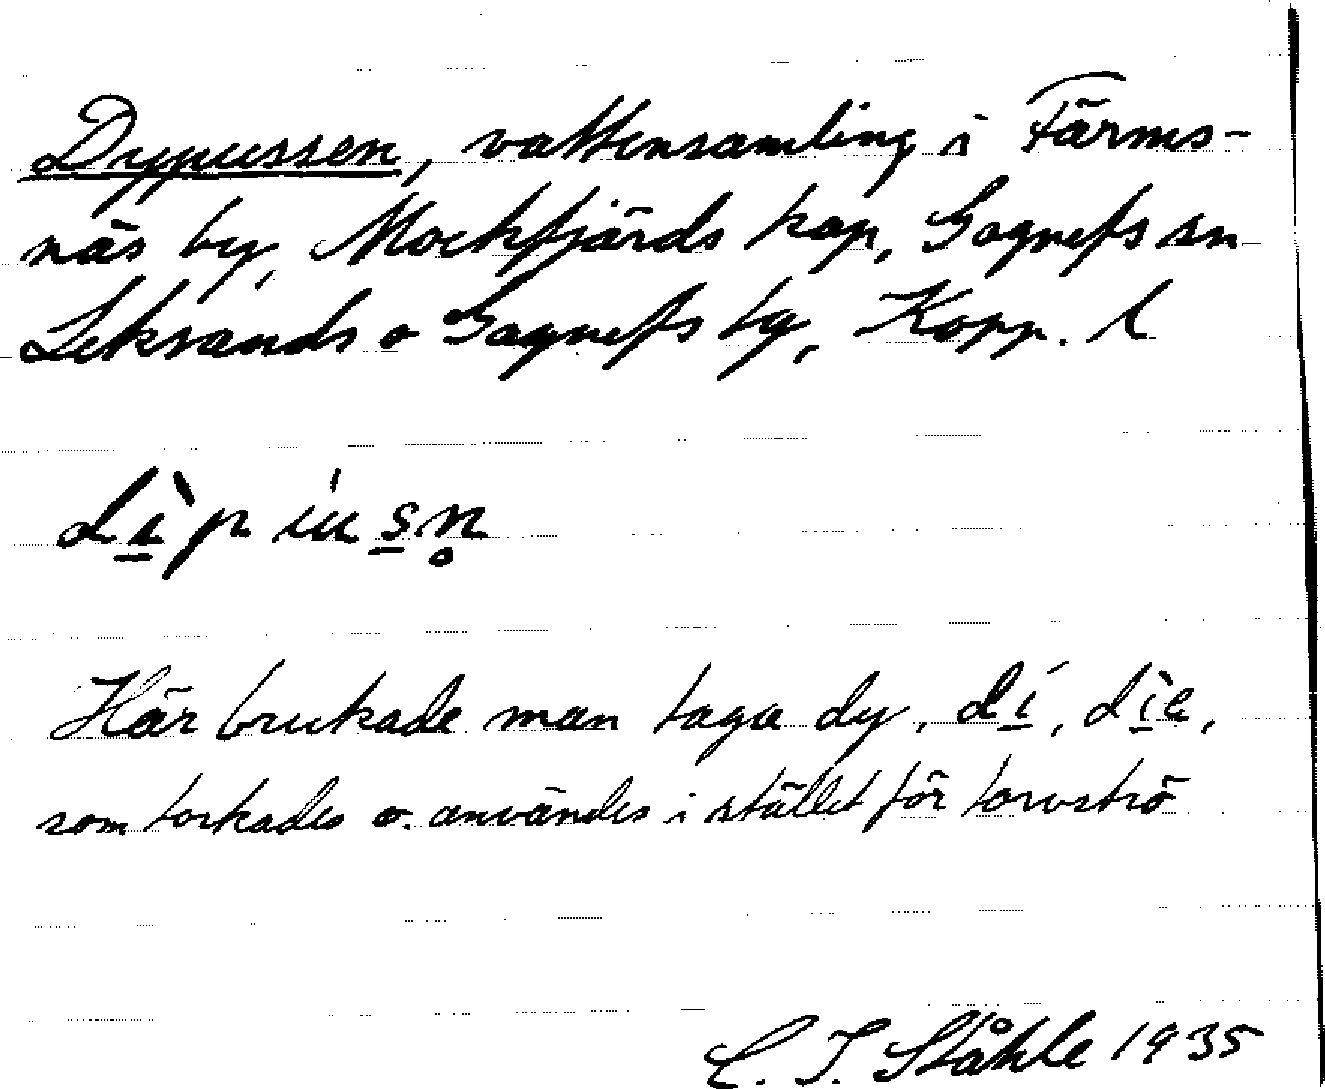 Dypussen, vattensamling i Färms-
näs by, Mockfjärds kap, Gagnefs sn
Leksands o Gagnefs tg, Kopp. l
dì̱pu̍s̱n̥
Här brukade man taga dy, dí̱, dì̱e,
som torkades o. användes i stället för torvströ
C. I. Ståhle 1935